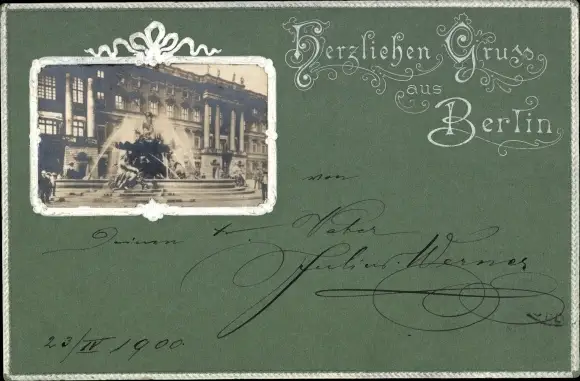 Herzlichen Gruss
aus
Berlin
von
Deinem tr. Vater
Julius Werner
23/IV 1900